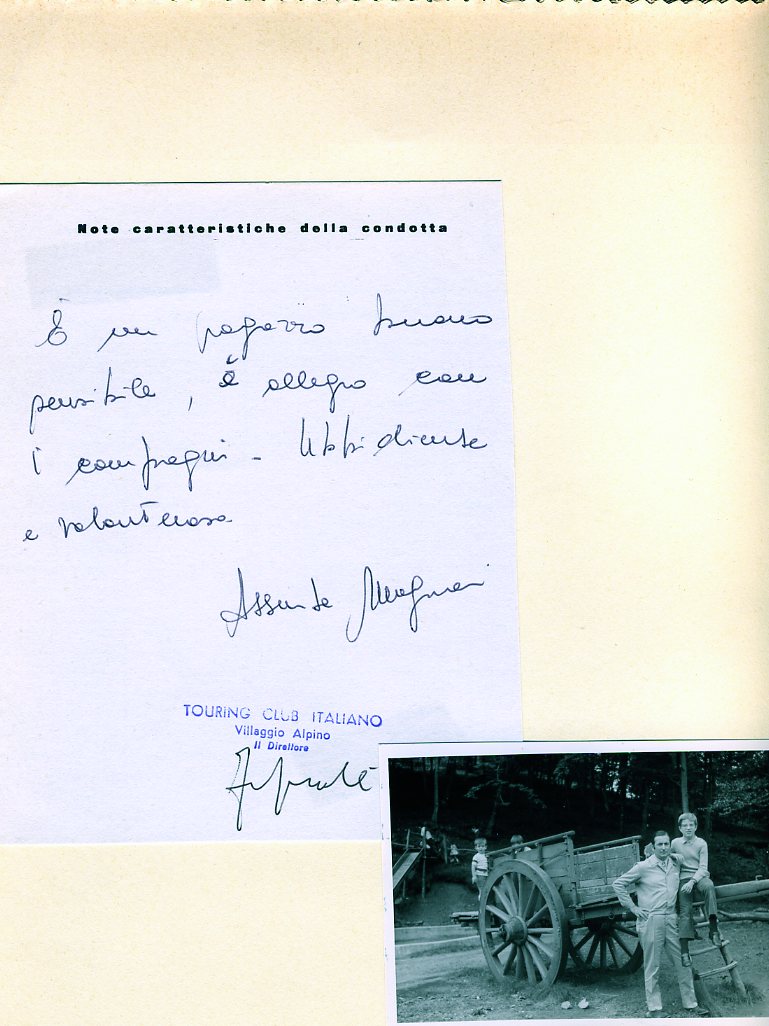 Note caratteristiche della condotta
È un ragazzo buono
sensibile, è allegro con
i compagni - Ubbidiente
e volonteroso
Assunta
TOURING CLUB ITALIANO
Villaggio Alpino
Il Direttore